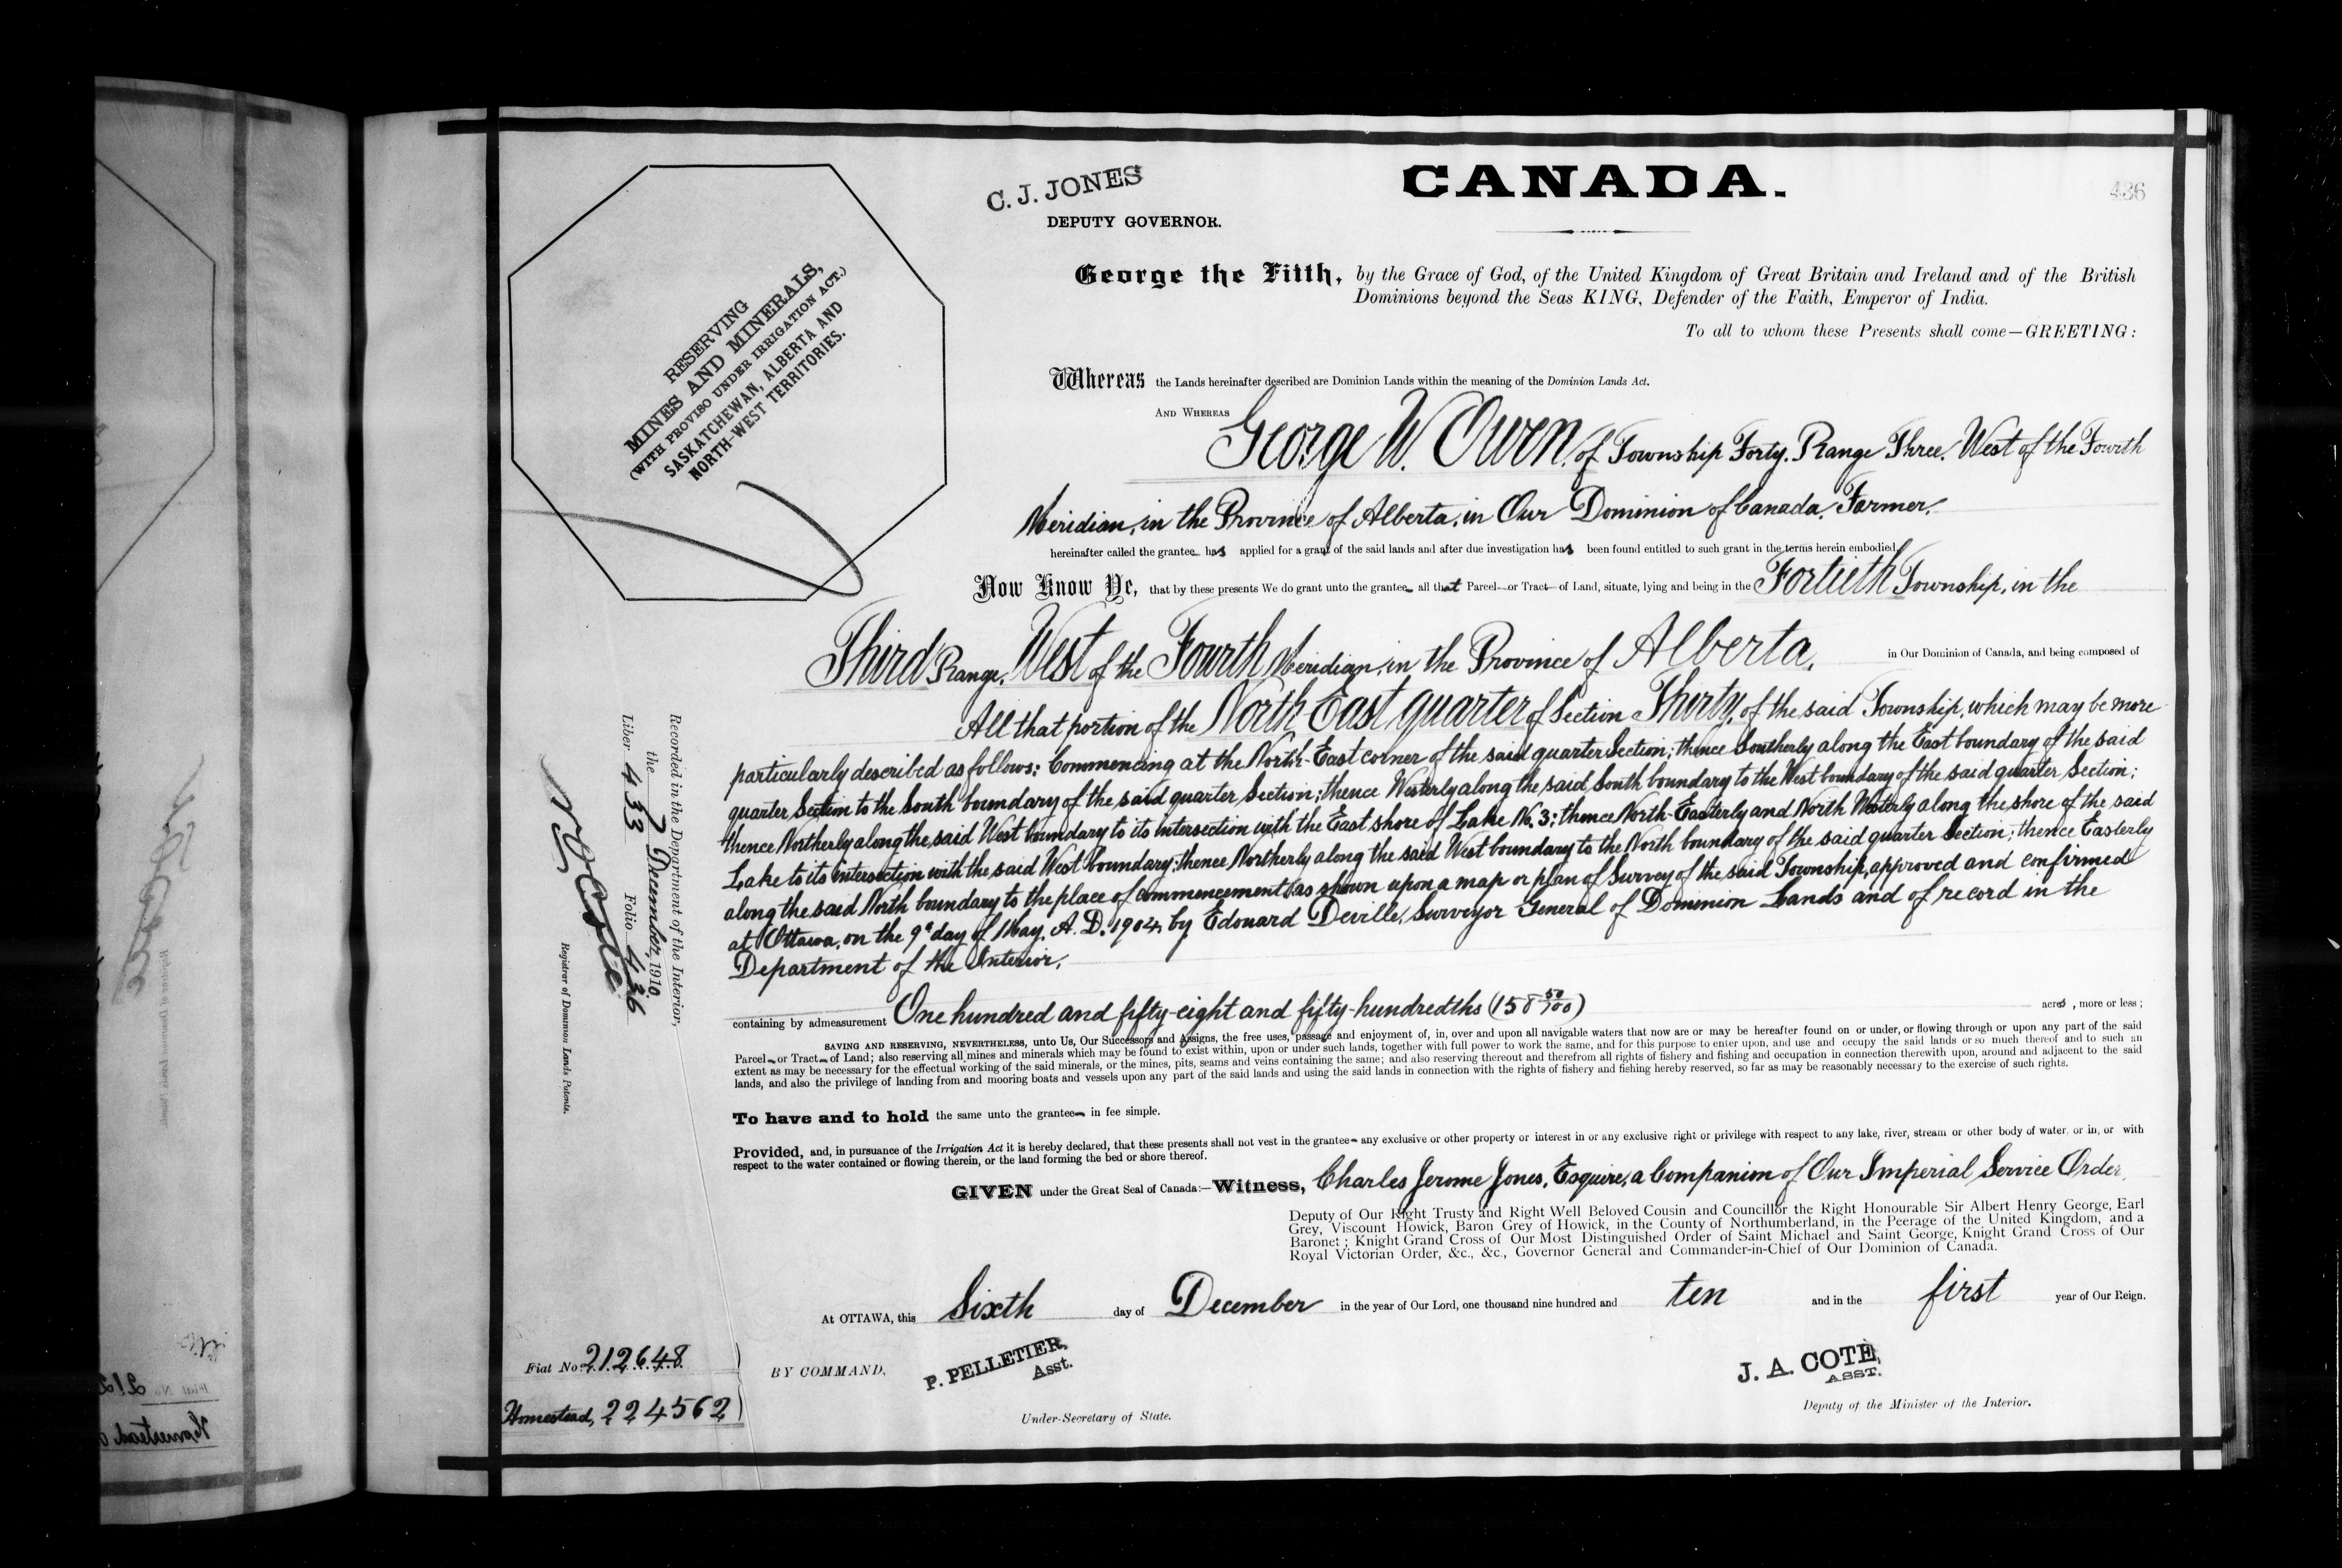 C. J. JONES
DEPUTY GOVERNOR.
CANADA.
436
RESERVING
MINES AND MINERALS,
(WITH PROVISO UNDER IRRIGATION ACT.)
SASKATCHEWAN, ALBERTA AND
NORTH-WEST TERRITORIES.
George the Fifth, by the Grace of God, of the United Kingdom of Great Britain and Ireland and of the British
Dominions beyond the Seas KING, Defender of the Faith, Emperor of India.
To all to whom these Presents shall come—GREETING:
Whereas the Lands hereinafter described are Dominion Lands within the meaning of the Dominion Lands Act.
AND WHEREAS George W. Owen, of Township Forty, Range Three, West of the Fourth
Meridian, in the Province of Alberta, in Our Dominion of Canada, Farmer,
hereinafter called the grantee has applied for a grant of the said lands and after due investigation has been found entitled to such grant in the terms herein embodied.
Now Know Ye, that by these presents We do grant unto the grantee all that Parcel or Tract of Land, situate, lying and being in the Fortieth Township, in the
Third Range, West of the Fourth Meridian, in the Province of Alberta, in Our Dominion of Canada, and being composed of
All that portion of the North East quarter of Section Thirty, of the said Township, which may be more
particularly described as follows: Commencing at the North-East corner of the said quarter Section; thence Southerly along the East boundary of the said
quarter Section to the South boundary of the said quarter Section; thence Westerly along the said South boundary to the West boundary of the said quarter Section;
thence Northerly along the said West boundary to its intersection with the East shore of Lake No. 3; thence North-Easterly and North Westerly along the shore of the said
Lake to its intersection with the said West boundary; thence Northerly along the said West boundary to the North boundary of the said quarter Section; thence Easterly
along the said North boundary to the place of commencement, as shown upon a map or plan of Survey of the said Township, approved and confirmed
at Ottawa, on the 9th day of May, A. D. 1904, by Edouard Deville, Surveyor General of Dominion Lands and of record in the
Department of the Interior,
containing by admeasurement One hundred and fifty-eight and fifty-hundredths (158 50/100) acres, more or less;
SAVING AND RESERVING, NEVERTHELESS, unto Us, Our Successors and Assigns, the free uses, passage and enjoyment of, in, over and upon all navigable waters that now are or may be hereafter found on or under, or flowing through or upon any part of the said
Parcel or Tract of Land; also reserving all mines and minerals which may be found to exist within, upon or under such lands, together with full power to work the same, and for this purpose to enter upon, and use and occupy the said lands or so much thereof and to such an
extent as may be necessary for the effectual working of the said minerals, or the mines, pits, seams and veins containing the same; and also reserving thereout and therefrom all rights of fishery and fishing and occupation in connection therewith upon, around and adjacent to the said
lands, and also the privilege of landing from and mooring boats and vessels upon any part of the said lands and using the said lands in connection with the rights of fishery and fishing hereby reserved, so far as may be reasonably necessary to the exercise of such rights.
To have and to hold the same unto the grantee in fee simple.
Provided, and, in pursuance of the Irrigation Act it is hereby declared, that these presents shall not vest in the grantee any exclusive or other property or interest in or any exclusive right or privilege with respect to any lake, river, stream or other body of water, or in, or with
respect to the water contained or flowing therein, or the land forming the bed or shore thereof.
GIVEN under the Great Seal of Canada:—Witness, Charles Jerome Jones, Esquire, a Companion of Our Imperial Service Order,
Deputy of Our Right Trusty and Right Well Beloved Cousin and Councillor the Right Honourable Sir Albert Henry George, Earl
Grey, Viscount Howick, Baron Grey of Howick, in the County of Northumberland, in the Peerage of the United Kingdom, and a
Baronet; Knight Grand Cross of Our Most Distinguished Order of Saint Michael and Saint George, Knight Grand Cross of Our
Royal Victorian Order, &c., &c., Governor General and Commander-in-Chief of Our Dominion of Canada.
At OTTAWA, this Sixth day of December in the year of Our Lord, one thousand nine hundred and ten and in the first year of Our Reign.
BY COMMAND,
P. PELLETIER,
Asst.
Under-Secretary of State.
J. A. COTÉ,
ASST.
Deputy of the Minister of the Interior.
Recorded in the Department of the Interior,
the 7 December, 1910
Liber 433 Folio 436
Registrar of Dominion Lands Patents.
Fiat No. 212648
Homestead, 224562